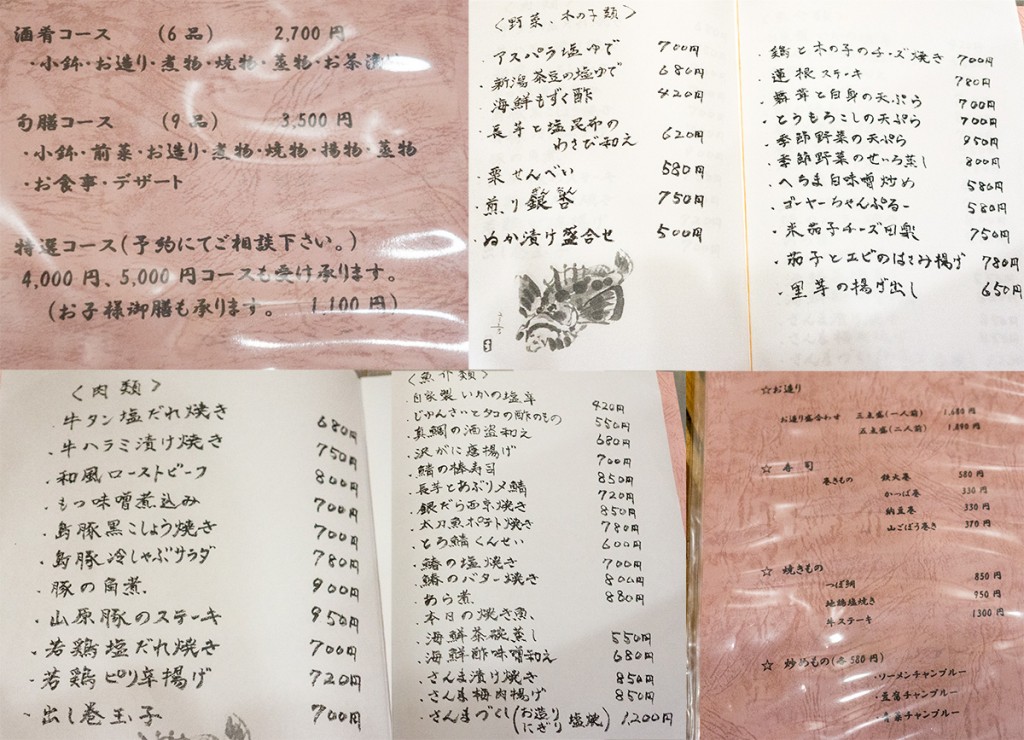 酒肴コース (6品) 2,700円
・小鉢・お造り・煮物・焼物・蒸物・お茶漬け
旬膳コース (9品) 3,500円
・小鉢・前菜・お造り・煮物・焼物・揚物・蒸物
・お食事・デザート
特選コース(予約にてご相談下さい。)
4,000円、5,000円コースも受け承ります。
(お子様御膳も承ります。 1,100円)
〈野菜、木の子類〉
・アスパラ塩ゆで 700円
・新潟茶豆の塩ゆで 680円
・海鮮もずく酢 420円
・長芋と塩昆布の
わさび和え 620円
・栗せんべい 580円
・煎り銀杏 750円
・ぬか漬け盛合せ 500円
・鶏と木の子のチーズ焼き 700円
・蓮根ステーキ 780円
・舞茸と白身の天ぷら 700円
・とうもろこしの天ぷら 700円
・季節野菜の天ぷら 950円
・季節野菜のせいろ蒸し 800円
・へちま白味噌炒め 580円
・ゴーヤーちゃんぷるー 580円
・米茄子チーズ田楽 750円
・茄子とエビのはさみ揚げ 780円
・里芋の揚げ出し 650円
〈肉類〉
・牛タン塩だれ焼き 680円
・牛ハラミ漬け焼き 750円
・和風ローストビーフ 800円
・もつ味噌煮込み 700円
・島豚黒こしょう焼き 700円
・島豚冷しゃぶサラダ 780円
・豚の角煮 900円
・山原豚のステーキ 950円
・若鶏塩だれ焼き 700円
・若鶏ピリ辛揚げ 720円
・出し巻玉子 700円
〈魚介類〉
・自家製いかの塩辛 420円
・じゅんさいとタコの酢のもの 550円
・真鯛の酒盗和え 680円
・沢がに唐揚げ 700円
・鯖の棒寿司 850円
・長芋とあぶり〆鯖 720円
・銀だら西京焼き 850円
・太刀魚ポテト焼き 780円
・とろ鯖くんせい 600円
・鰆の塩焼き 700円
・鰆のバター焼き 800円
・あら煮 880円
・本日の焼き魚
・海鮮茶碗蒸し 550円
・海鮮酢味噌和え 680円
・さんま漬け焼き 850円
・さんま梅肉揚げ 850円
・さんまづくし(お造り にぎり 塩焼) 1,200円
☆お造り
お造り盛合わせ 三点盛(一人前) 1,680円
五点盛(二人前) 1,890円
☆ 寿司
巻きもの 鉄火巻 580円
かっぱ巻 330円
納豆巻 330円
山ごぼう巻き 370円
☆ 焼きもの
つぼ鯛 850円
地鶏塩焼き 950円
牛ステーキ 1300円
☆ 炒めもの(各580円)
・ソーメンチャンプルー
・豆腐チャンプルー
チャンプルー